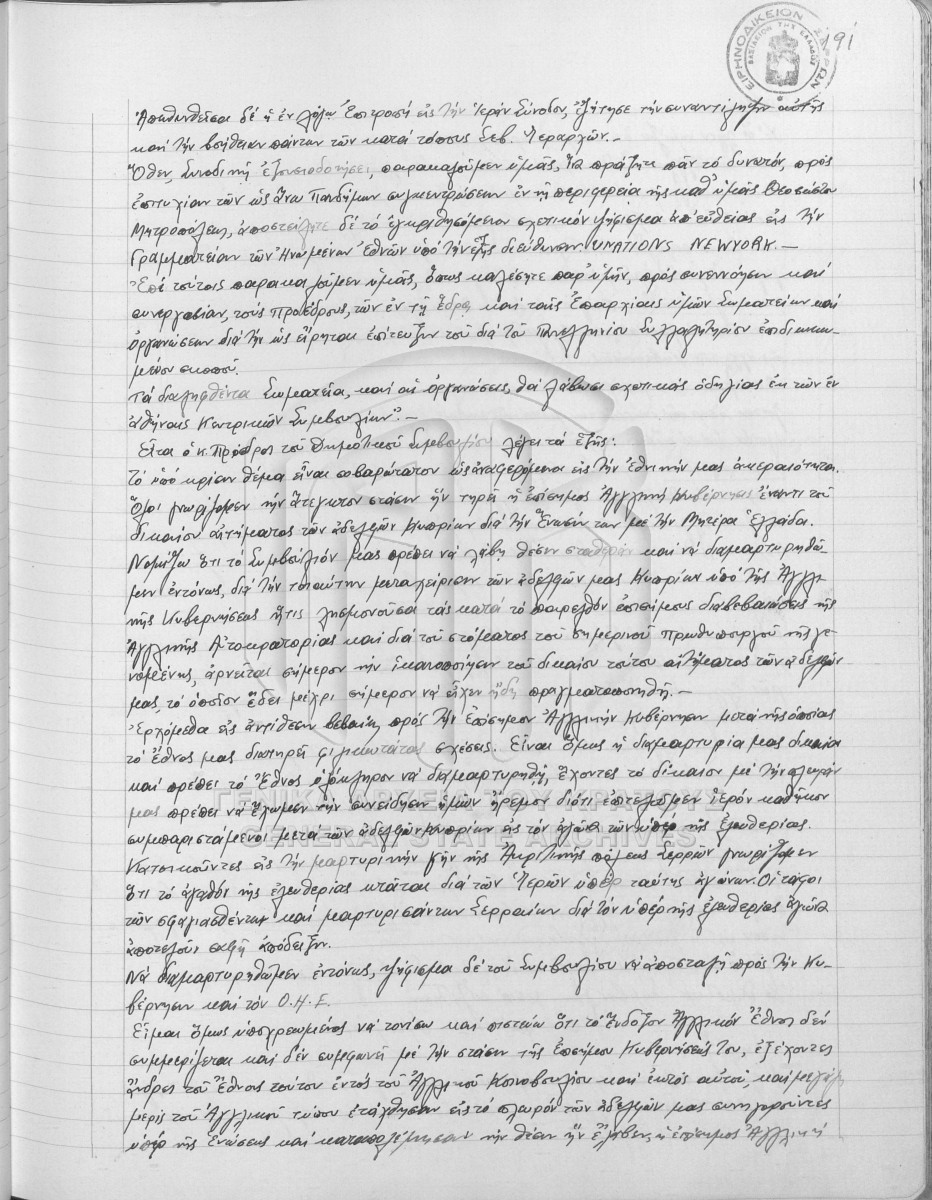 ΕΙΡΗΝΟΔΙΚΕΙΟΝ ΣΕΡΡΩΝ
ΒΑΣΙΛΕΙΟΝ ΤΗΣ ΕΛΛΑΔΟΣ
191
Ἀπευθυνθεῖσα δέ ἡ ἐν λόγω Ἐπιτροπή εἰς τήν Ἱεράν Σύνοδον, ἐζήτησε τήν συναντίληψιν αὐτῆς
καί τήν βοήθειαν πάντων τῶν κατά τόπους Σεβ. Ἱεραρχῶν.-
Ὅθεν, Συνοδικῇ ἐξουσιοδοτήσει, παρακαλοῦμεν ὑμᾶς, ἵνα πράξητε πᾶν τό δυνατόν, πρός
ἐπιτυχίαν τῶν ὡς ἄνω Πανδήμων συγκεντρώσεων ἐν τῇ περιφερείᾳ τῆς καθ' ὑμᾶς Θεοσώστου
Μητροπόλεως, ἀποστείλητε δέ τό ἐγκριθησόμενον σχετικόν ψήφισμα ἀπ' εὐθείας εἰς τήν
Γραμματείαν τῶν Ἡνωμένων Ἐθνῶν ὑπό τήν ἑξῆς διεύθυνσιν: UNATIONS NEWYORK.-
Ἐπί τούτοις παρακαλοῦμεν ὑμᾶς, ὅπως καλέσητε παρ' ὑμῖν, πρός συνεννόησιν καί
συνεργασίαν, τούς προέδρους, τῶν ἐν τῇ ἕδρᾳ καί ταῖς Ἐπαρχίαις ὑμῶν Σωματείων καί
ὀργανώσεων διά τήν ὡς εἴρηται ἐπίτευξιν τοῦ διά τοῦ Πανελληνίου Συλλαλητηρίου ἐπιδιωκο-
μένου σκοποῦ.
Τά διαληφθέντα Σωματεῖα, καί αἱ ὀργανώσεις, θά λάβωσι σχετικάς ὁδηγίας ἐκ τῶν ἐν
Ἀθήναις Κεντρικῶν Συμβουλίων".-
Εἶτα ὁ κ. Πρόεδρος τοῦ Δημοτικοῦ Συμβουλίου λέγει τά ἑξῆς:
Τό ὑπό κρίσιν θέμα εἶναι σοβαρώτατον ὡς ἀναφερόμενον εἰς τήν ἐθνικήν μας ἀκεραιότητα.
Ὅλοι γνωρίζομεν τήν ἄτεγκτον στάσιν ἥν τηρεῖ ἡ ἐπίσημος Ἀγγλική Κυβέρνησις ἔναντι τοῦ
δικαίου αἰτήματος τῶν ἀδελφῶν Κυπρίων διά τήν Ἕνωσίν των μέ τήν Μητέρα Ἑλλάδα.
Νομίζω ὅτι τό Συμβούλιόν μας πρέπει νά λάβῃ θέσιν σταθεράν καί νά διαμαρτυρηθῶ-
μεν ἐντόνως, διά τήν τοιαύτην μεταχείρισιν τῶν ἀδελφῶν μας Κυπρίων ὑπό τῆς Ἀγγλι-
κῆς Κυβερνήσεως ἥτις λησμονοῦσα τάς κατά τό παρελθόν ἐπισήμους διαβεβαιώσεις τῆς
Ἀγγλικῆς Αὐτοκρατορίας καί διά τοῦ στόματος τοῦ σημερινοῦ πρωθυπουργοῦ τῆς γε-
νομένης, ἀρνεῖται σήμερον τήν ἱκανοποίησιν τοῦ δικαίου τούτου αἰτήματος τῶν ἀδελφῶν
μας, τό ὁποῖον ἔδει μέχρι σήμερον νά εἶχεν ἤδη πραγματοποιηθῇ.-
Ἐρχόμεθα εἰς ἀντίθεσιν βεβαίως πρός τήν ἐπίσημον Ἀγγλικήν Κυβέρνησιν μετά τῆς ὁποίας
τό Ἔθνος μας διατηρεῖ φιλικωτάτας σχέσεις. Εἶναι ὅμως ἡ διαμαρτυρία μας δικαία
καί πρέπει τό Ἔθνος ὁλόκληρον νά διαμαρτυρηθῇ, ἔχοντες τό δίκαιον μέ τήν πλευράν
μας πρέπει νά ἔχωμεν τήν συνείδησιν ἡμῶν ἤρεμον διότι ἐπιτελοῦμεν ἱερόν καθῆκον
συμπαριστάμενοι μετά τῶν ἀδελφῶν Κυπρίων εἰς τόν ἀγῶνα των ὑπέρ τῆς ἐλευθερίας.
Κατοικοῦντες εἰς τήν μαρτυρικήν γῆν τῆς Ἀκριτικῆς πόλεως Σερρῶν γνωρίζομεν
ὅτι τό ἀγαθόν τῆς ἐλευθερίας κτᾶται διά τῶν ἱερῶν ὑπέρ ταύτης ἀγώνων. Οἱ τάφοι
τῶν σφαγιασθέντων καί μαρτυρισάντων Σερραίων διά τόν ὑπέρ τῆς ἐλευθερίας ἀγῶνα
ἀποτελοῦν σαφῆ ἀπόδειξιν.
Νά διαμαρτυρηθῶμεν ἐντόνως, ψήφισμα δέ τοῦ Συμβουλίου νά ἀποσταλῇ πρός τήν Κυ-
βέρνησιν καί τόν Ο.Η.Ε.
Εἶμαι ὅμως ὑποχρεωμένος νά τονίσω καί πιστεύω ὅτι τό ἔνδοξον Ἀγγλικόν Ἔθνος δέν
συμμερίζεται καί δέν συμφωνῆ μέ τήν στάσιν τῆς ἐπισήμου Κυβερνήσεώς του, ἐξέχοντες
ἄνδρες τοῦ Ἔθνους τούτου ἐντός τοῦ Ἀγγλικοῦ Κοινοβουλίου καί ἐκτός αὐτοῦ, καί μεγάλη
μερίς τοῦ Ἀγγλικοῦ τύπου ἐτάχθησαν εἰς τό πλευρόν τῶν ἀδελφῶν μας συνηγοροῦντες
ὑπέρ τῆς ἑνώσεως καί κατεπολέμησαν τήν θέσιν ἥν ἔλαβεν, ἡ ἐπίσημος Ἀγγλική
ΓΕΝΙΚΑ ΑΡΧΕΙΑ ΤΟΥ ΚΡΑΤΟΥΣ
GENERAL STATE ARCHIVES